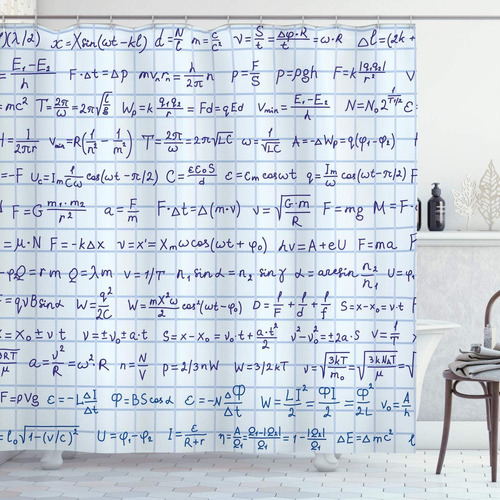 )(λ/2) x=Xsin(ωt-kl) d=N/L m=c/c² v=S/t=Δφ·R/t=ω·R Δl=(2k+
=E₁-E₂/h F·Δt=Δp mvₙrₙ=h/2π n p=F/S p=ρgh F=k|q₁q₂|/r² V
=mc² T=2π/ω=2π√(L/g) Wₚ=k q₁q₂/r=Fd=qEd Vmin=E₁-E₂/h N=N₀2 ε=
H=I/2πr Vmin=R(1/n²-1/m²) T=2π/ω=2π√LC ω=1/√LC A=-ΔWₚ=q(φ₁-φ₂) F
=-F Uc=Iₘ 1/Cω cos(ωt-π/2) C=εε₀S/d ε=Cmcosωt q=Iₘ/ω cos(ωt-π/2) F
F=G m₁·m₂/r² a=F/m F·Δt=Δ(m·v) v=√(G·m/R) F=mg M=F·
=μ·N F=-kΔx v=x'=Xₘωcos(ωt+φ₀) hν=A+eU F=ma F
-φ₂ Q=rm Q=λm v=1/T n₁sinα=n₂sinγ α=arcsin n₂/n₁ U=φ₁
=qvBsinα W=q²/2C W=mX²ω/2 cos²(ωt-φ₀) D=1/F=1/d+1/f S=x-x₀=v·t F
=X₀±v t v=±v₀±a·t S=x-x₀=v₀·t+a·t²/2 v²-v₀²=±2a·S v=1/T
3RT/μ a=v²/R=ω²·R n=N/V p=2/3nW W=3/2kT v=√(3kT/m₀)=√(3kNₐT/μ)=√
F=ρVg ε=-L ΔI/Δt Φ=BScosα ε=-N ΔΦ/Δt W=LI²/2=ΦI/2=Φ²/2L v₀=A/h
=l₀√(1-(v/c)²) U=φ₁-φ₂ I=ε/R+r η=A/Q₁=Q₁-|Q₂|/Q₁=1-|Q₂|/Q₁ ΔE=Δmc² l